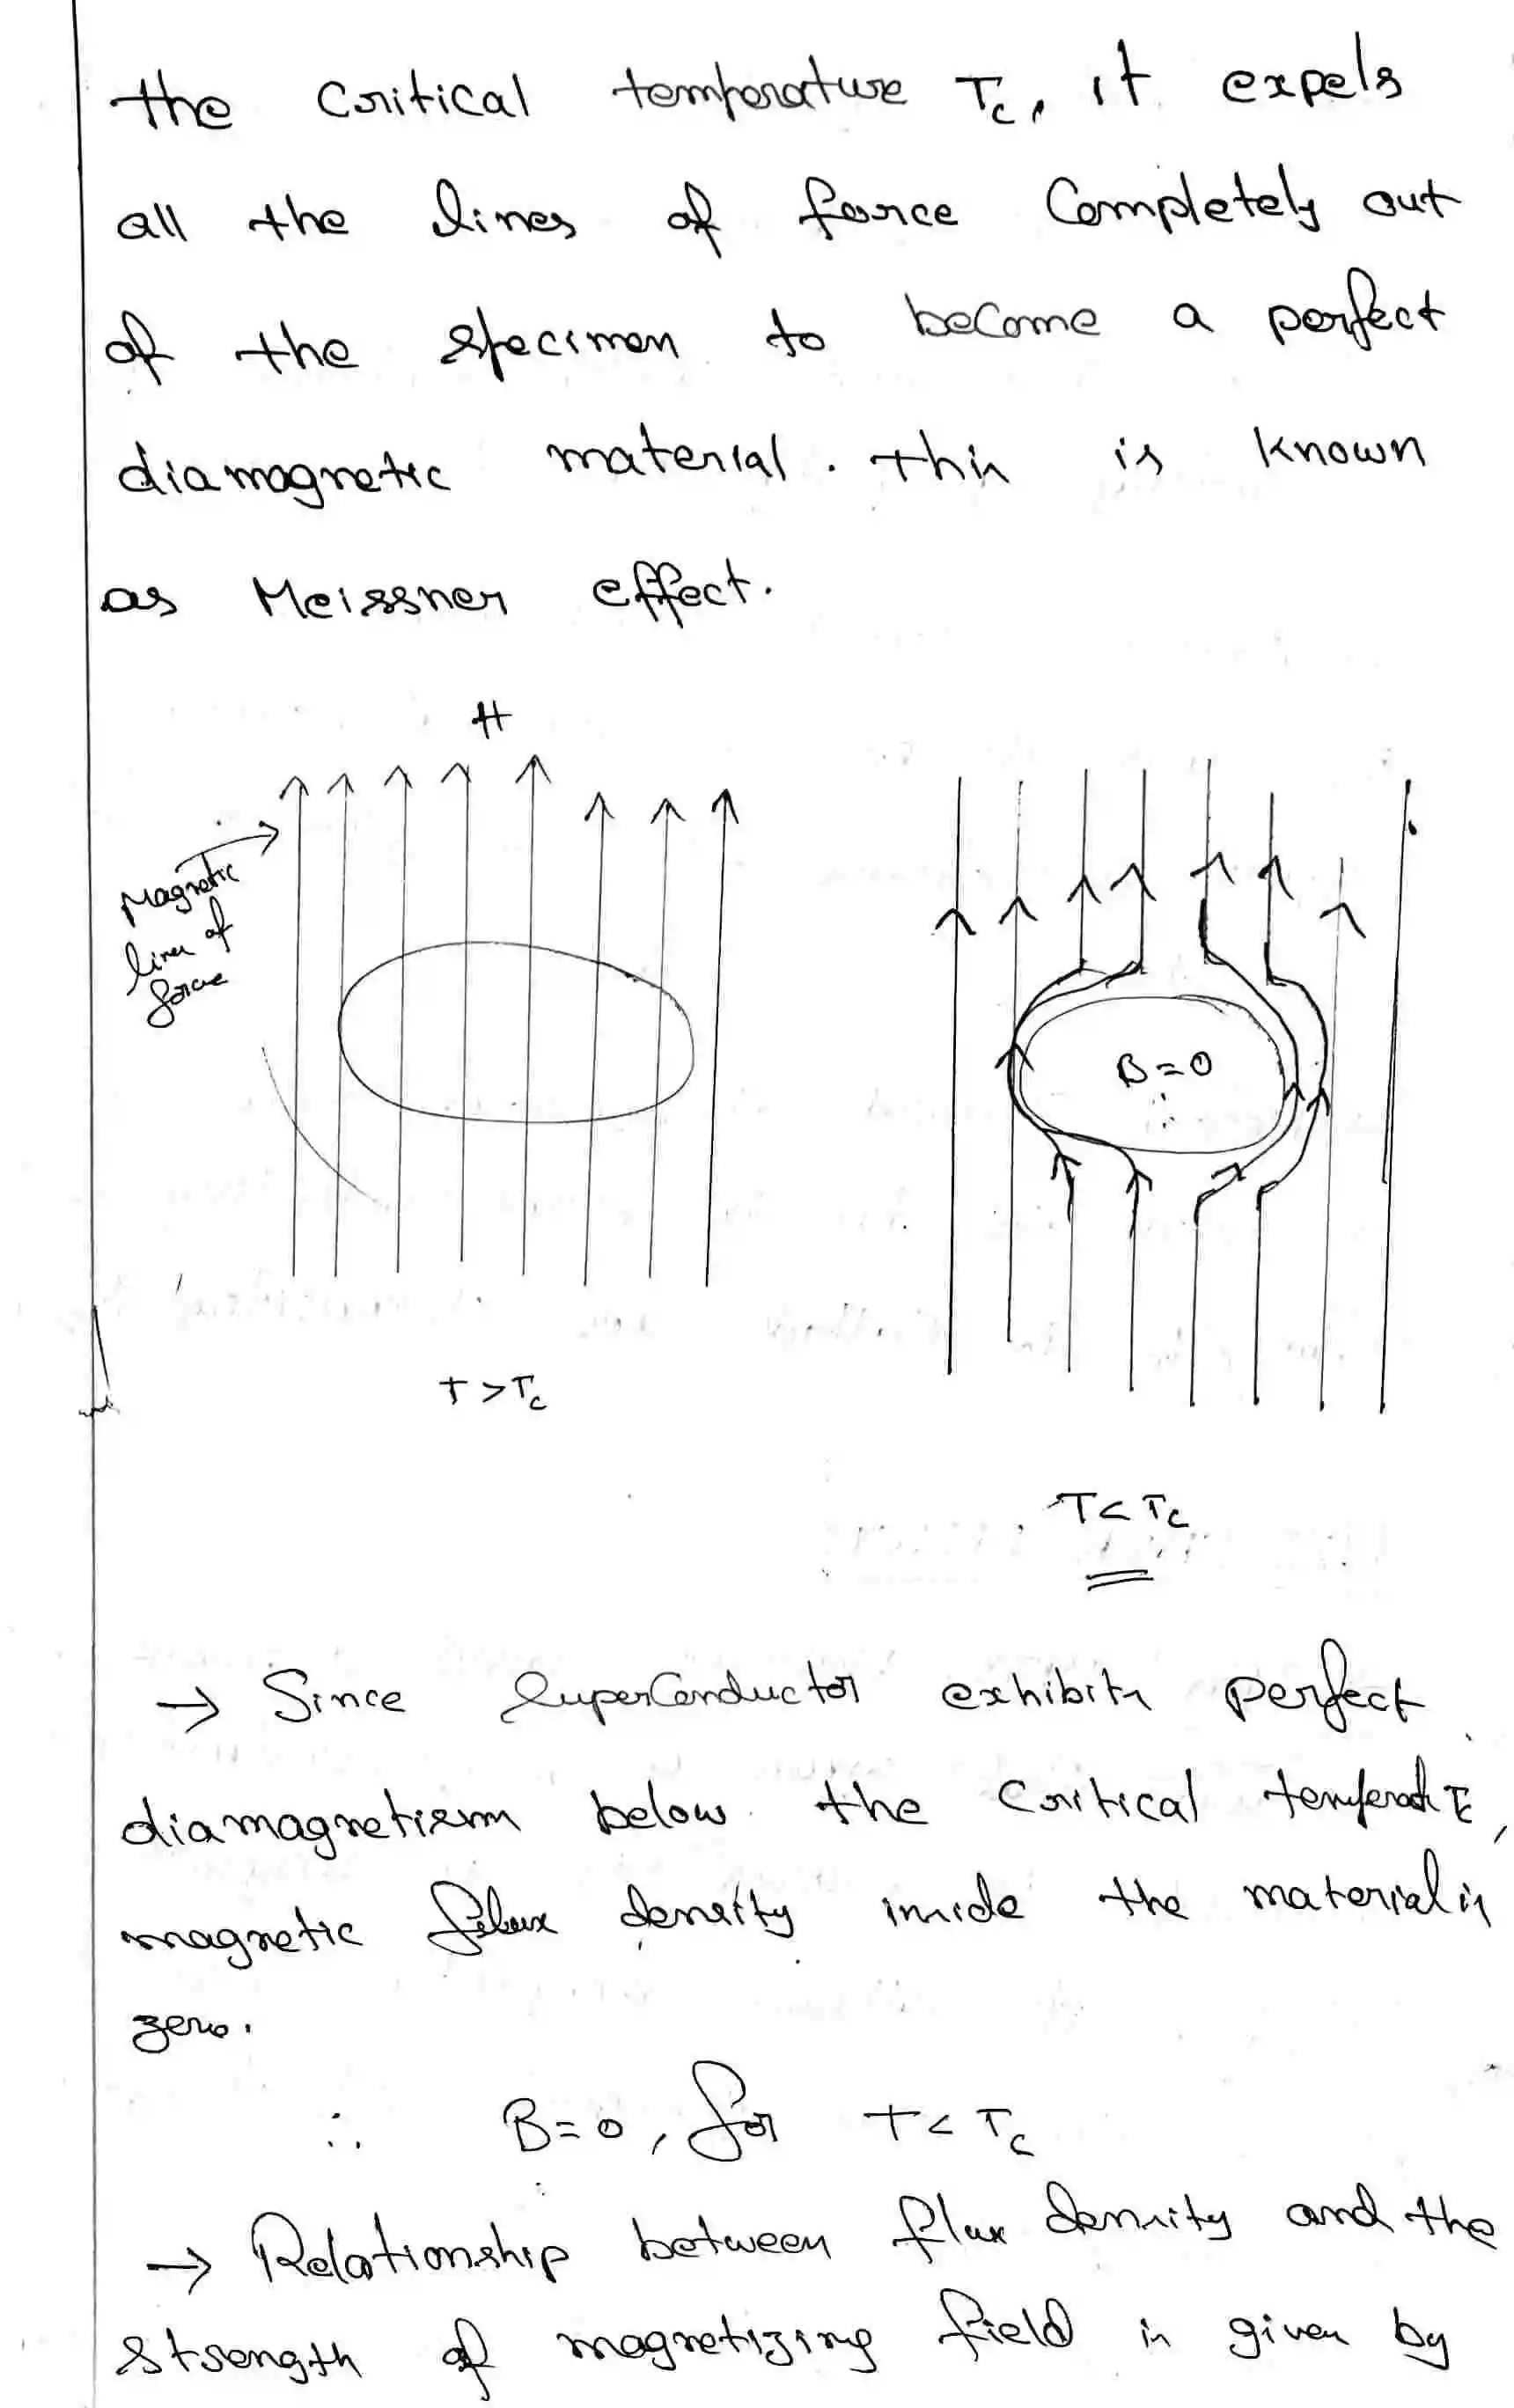 the critical temperature Tc, it expels
all the lines of force Completely out
of the specimen to become a perfect
diamagnetic material. this is known
as Meissner effect.
H
Magnetic
lines of
force
B=0
T>Tc
T<Tc
→ Since SuperConductor exhibits perfect
diamagnetism below the critical temperat Tc,
magnetic flux density inside the material is
zero.
∴ B=0, for T<Tc
→ Relationship between flux density and the
strength of magnetizing field is given by